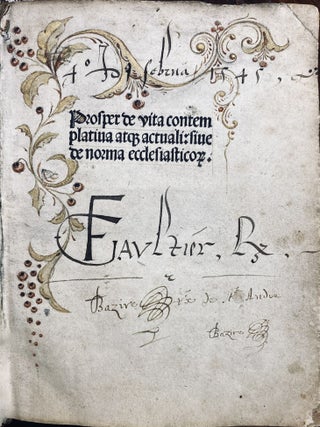 4º february 1545
Prosper de vita contem
platiua atq̃ actuali: siue
de norma ecclesiasticoꝝ.
Faultier. Rx.
Bazire de Andre
Bazire